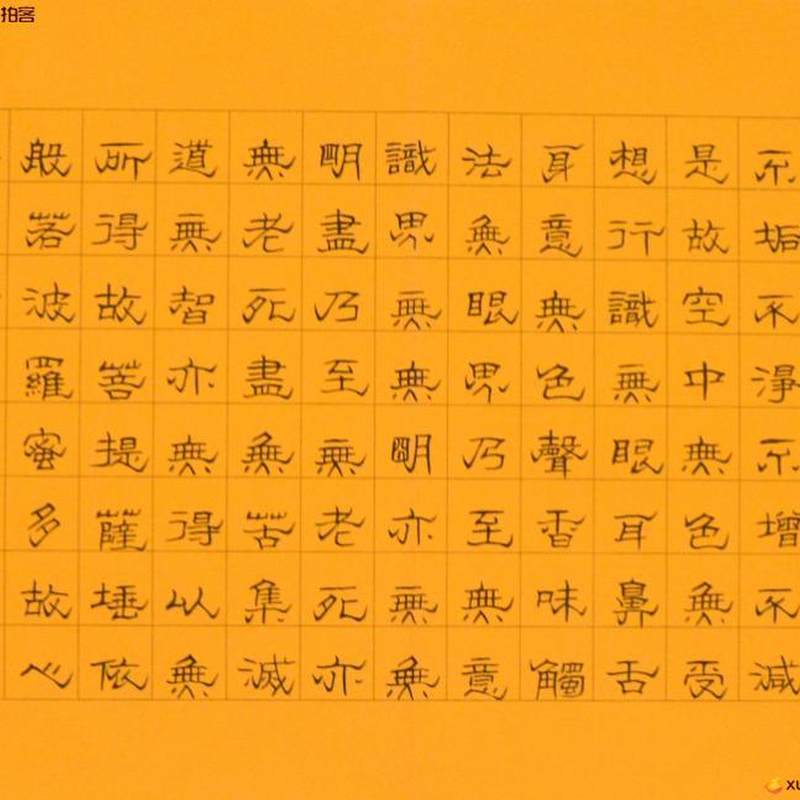 不垢不淨不增不減
是故空中無色無受
想行識無眼耳鼻舌
身意無色聲香味觸
法無眼界乃至無意
識界無無明亦無無
明盡乃至無老死亦
無老死盡無苦集滅
道無智亦無得以無
所得故菩提薩埵依
般若波羅蜜多故心
拍客
xu